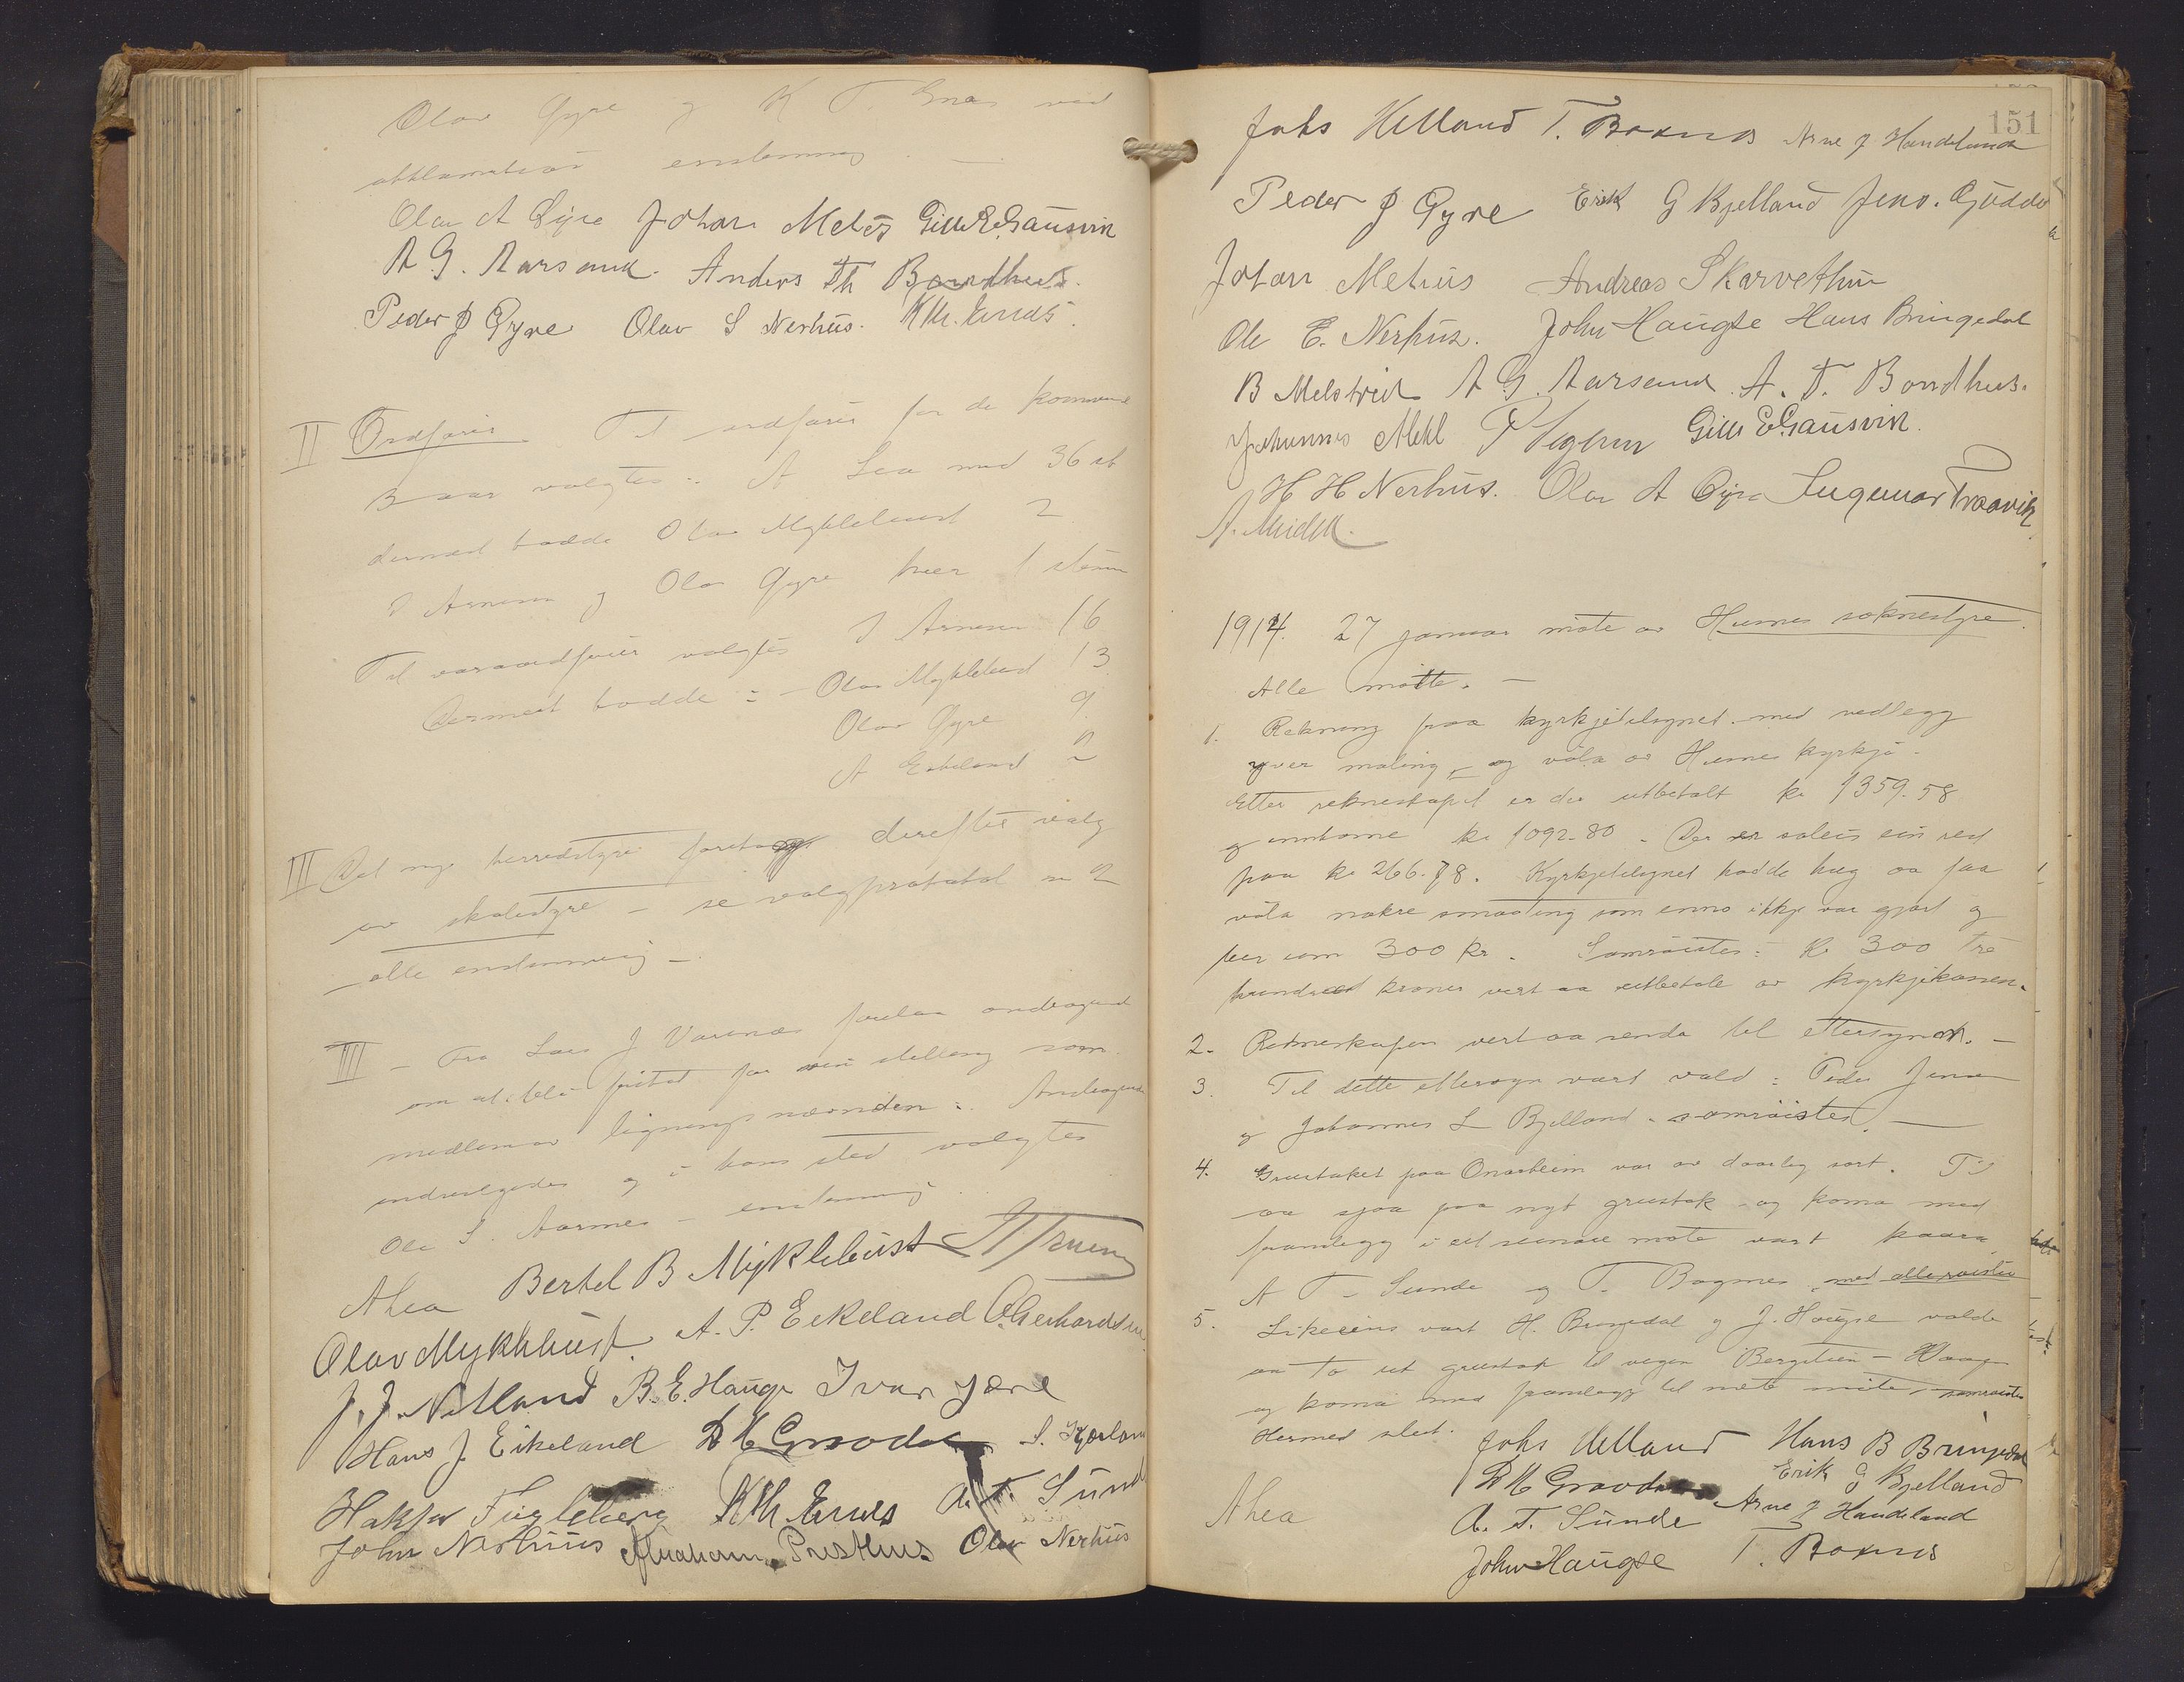 Olav Gyre og K T. Enes ved
akklamation enstemmig. —
Olav A Gyre Johan Mehus Gille E. Gausvik
A G. Aarsand. Anders Th Bondhus.
Peder J Gyre Olav S Nerhus. K Th. Enes.
II Ordförer Til ordförer for de kommende
3 aar valgtes: A Lea med 36 st
dernæst hadde Olav Myklebust 2
og Olav Gyre hver 1 stem
Til varaordförer valgtes 16
Dernæst hadde: — Olav Myklebust 13
Olav Gyre 9
A Eikeland 2
III Det nye herredstyre foretog derefter valg
av skolestyre — se valgprotokol
— alle enstemmig —
III — Fra Lars J Varenæs forelaa andragende
om at bli fritat for sin stilling som
medlem av ligningsnævnden. Andragende
indvilgedes og i hans sted valgtes
Ole S. Aarmes — enstemmig.
A Lea Bertel B Myklebust
Olav Myklebust. A. P. Eikeland O. Gerhardsen
J. J. Netland B. E. Hauge Ivar Jere
Hans J Eikeland
Hakjør Fugleberg K Th Enes A. T. Sund
John Nerhus Abraham Presthus Olav Nerhus
151
Johs Helland T. Boxnes Arne J Handeland
Peder J Gyre Erik G Bjelland Jens. Gjuddo
Johan Mehus Andreas Skarvethun
Ole E. Nerhus. John Haugse Hans Bringedal
B Melstveit A G. Aarsand A. T. Bondhus.
Johannes Mehl Gille E. Gausvik.
H H Nerhus. Olav A Gyre Ingemar Traavik
A. Meidell.
1914. 27 januar möte av Husnes soknestyre.
Alle mötte. —
1. Rekning fraa kyrkjetilsynet med vedlegg
yver maling og völa av Husnes kyrkja.
Etter rekneskapet er der utbetalt kr 1359.58
og inntome kr 1092-80. Der er soleis ein rest
paa kr 266.78. Kyrkjetilsynet hadde hug aa faa
völa nokre smaating som enno ikkje var gjort og
beer um 300 kr. Samröistes: Kr 300 tre
hundred kroner vert aa utbetale av kyrkjekassen.
2. Rekneskapen vert aa senda til ettersynet. —
3. Til dette ettersyn vart vald: Peder Jensa
og Johannes L Bjelland. samröistes. —
4. Grustaket paa Onarheim var av daarleg sort. Til
aa sjaa paa nyt grustak og koma med
framlegg i eit seinare möte vart kaara
A T. Sunde og T. Bogsnes, med alle röister
5. Likeeins vart H. Bringedal og J. Haugse valde
aa ta ut grustak til vegen Bergstein — Vaage
og koma med framlegg til neste möte, samröistes
Hermed slut. Johs Helland Hans B Bringedal
Erik G Bjelland
A Lea A. T. Sunde Arne J Handeland
John Haugse T. Boxnes